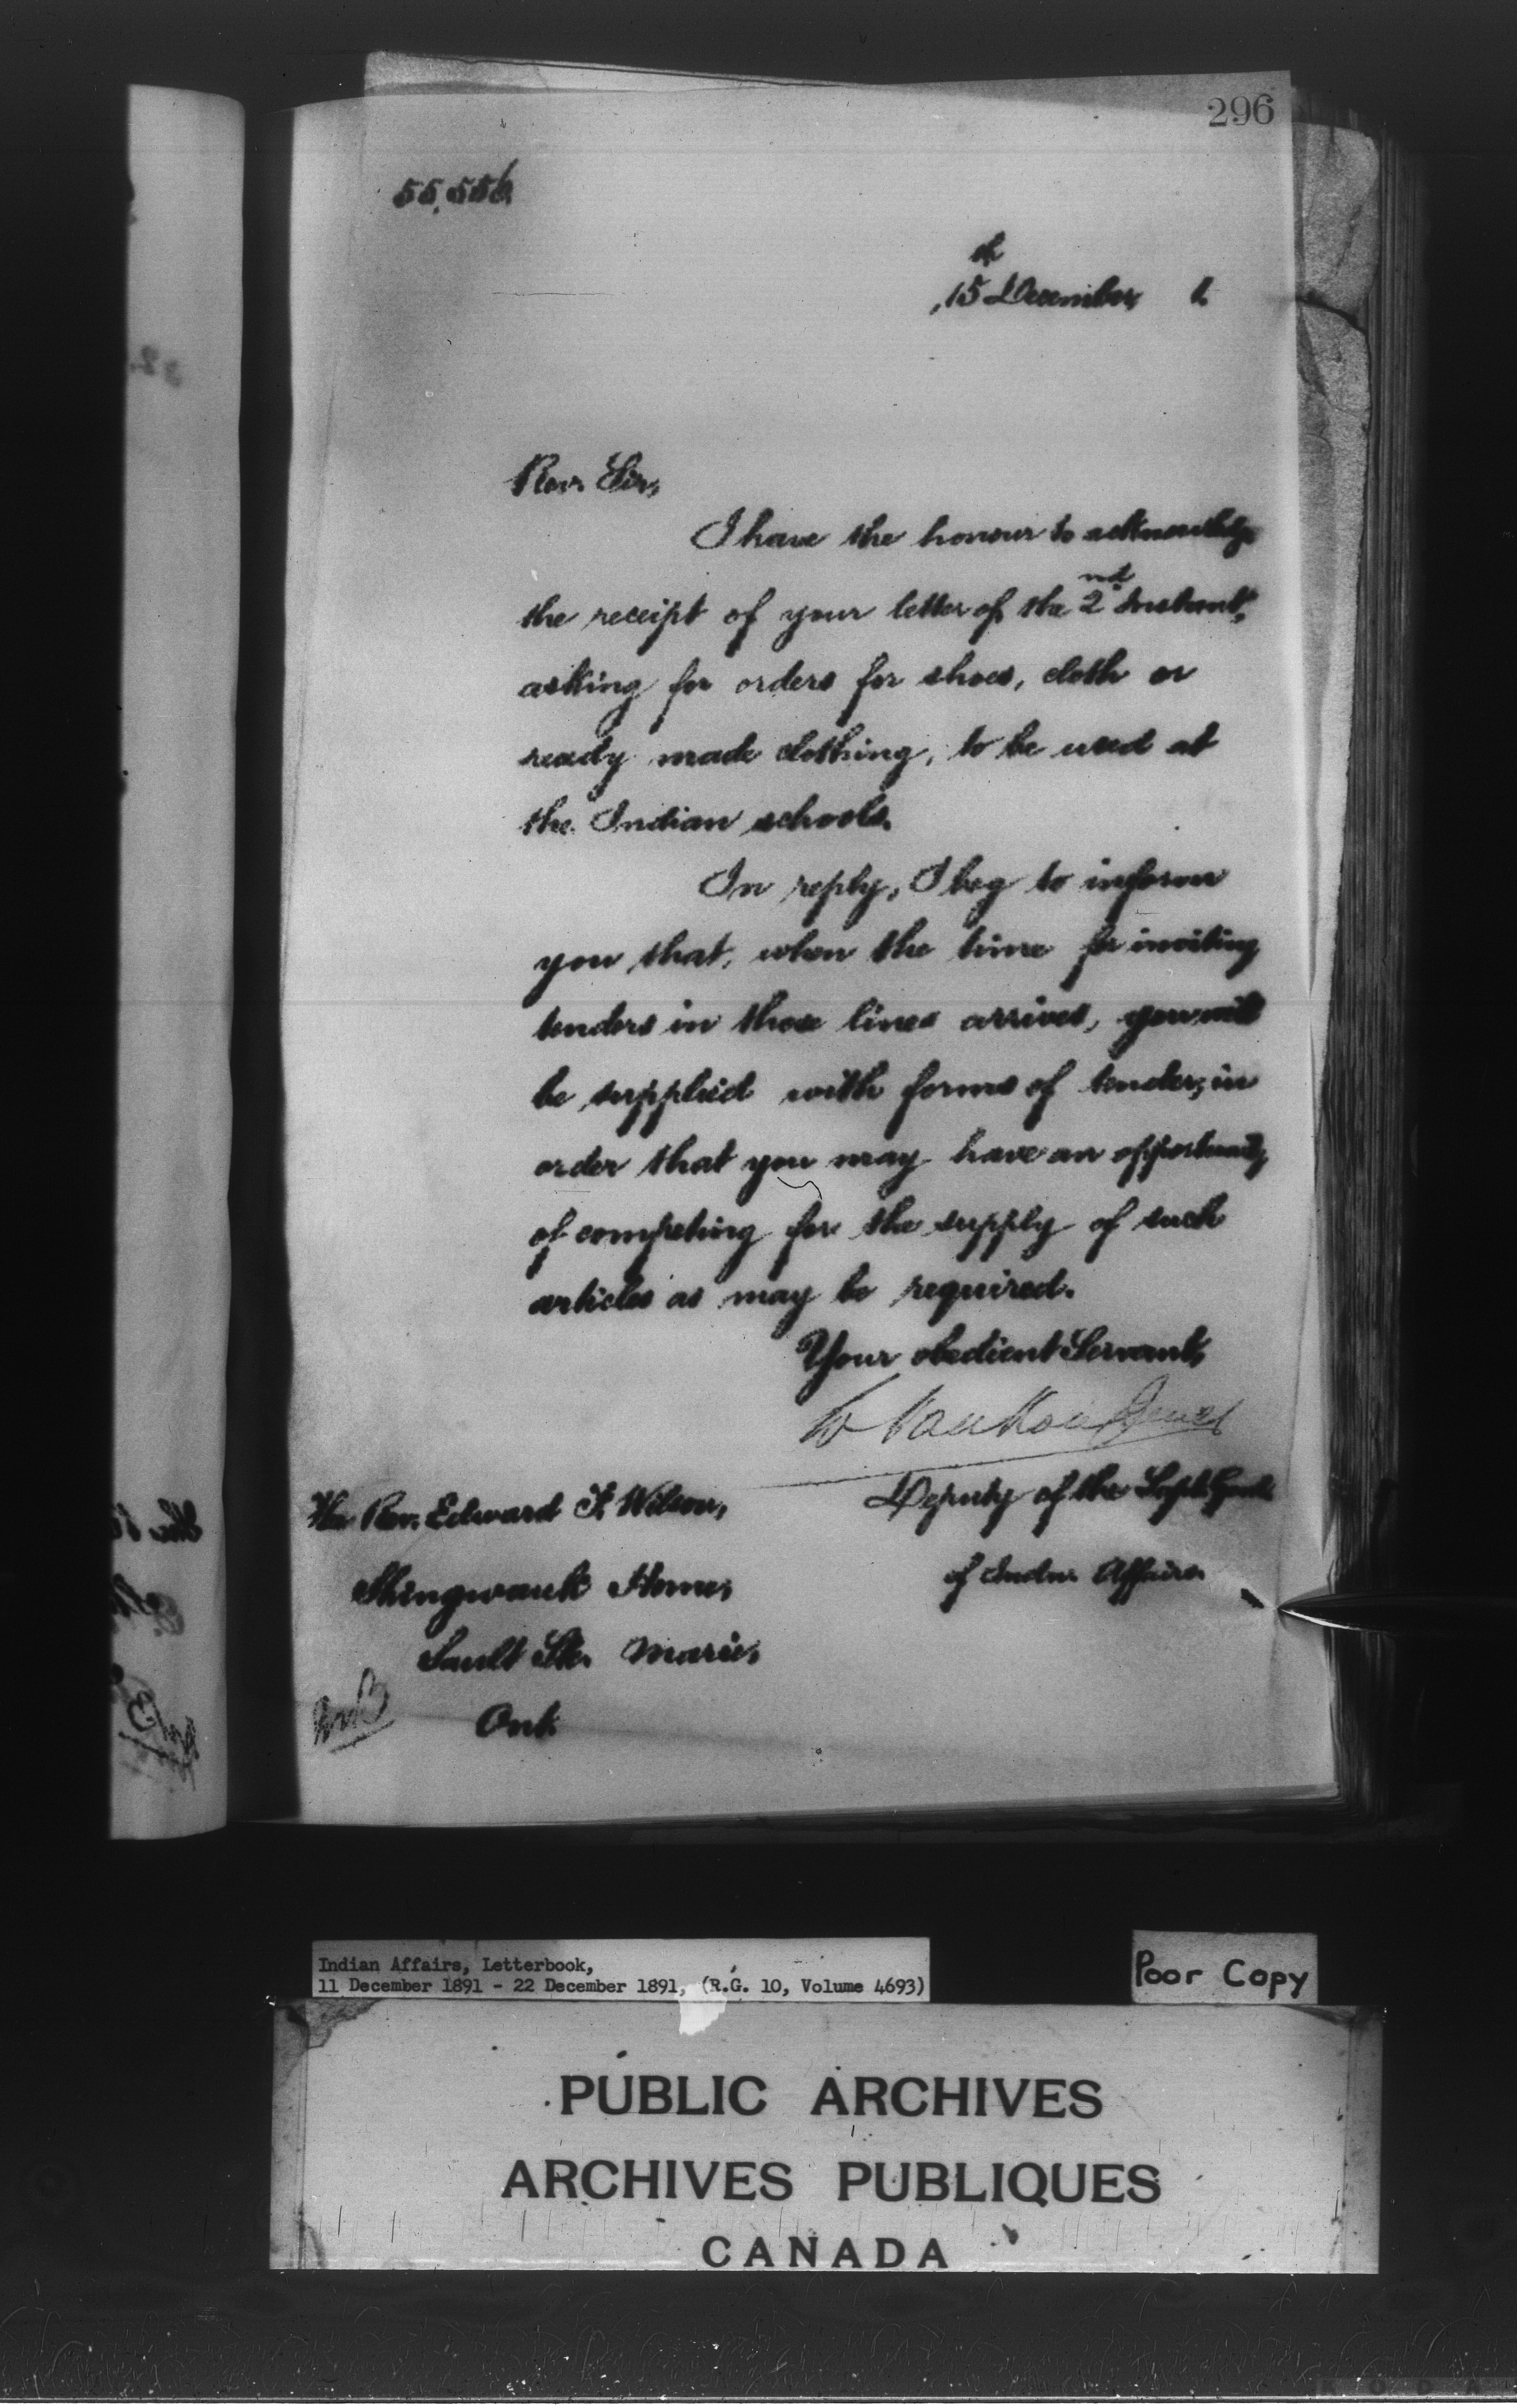 296
55,556
15th December 1.
Rev. Sir,
I have the honour to acknowledge
the receipt of your letter of the 2nd Instant,
asking for orders for shoes, cloth or
ready made clothing, to be used at
the Indian schools.
In reply, I beg to inform
you that, when the time for inviting
tenders in those lines arrives, you will
be supplied with forms of tender, in
order that you may have an opportunity
of competing for the supply of such
articles as may be required.
Your obedient Servant,
Deputy of the Supt. Genl.
of Indn. Affairs.
The Rev. Edward F. Wilson,
Shingwauk Home,
Sault Ste. Marie,
Ont.
Indian Affairs, Letterbook,
11 December 1891 - 22 December 1891, (R.G. 10, Volume 4693)
Poor Copy
PUBLIC ARCHIVES
ARCHIVES PUBLIQUES
CANADA